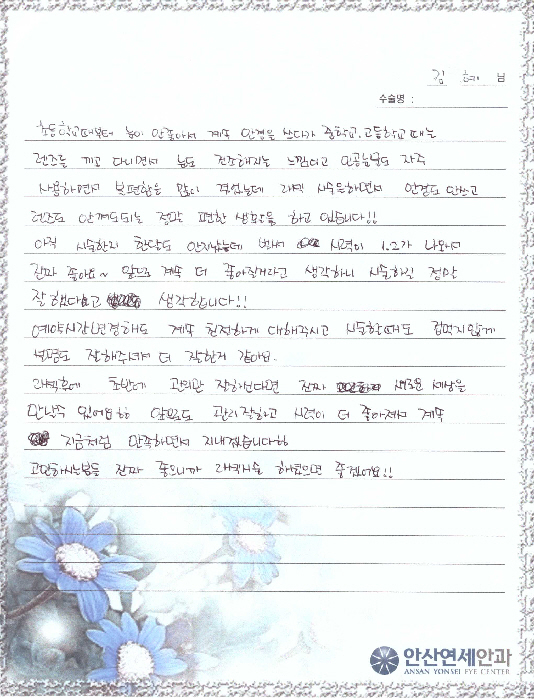 김 혜 님
수술명 :
초등학교때부터 눈이 안좋아서 계속 안경을 쓰다가 중학교, 고등학교 때는
렌즈를 끼고 다니면서 눈도 건조해지는 느낌이고 인공눈물도 자주
사용하면서 불편함을 많이 겪었는데 라섹 시술하면서 안경도 안쓰고
렌즈도 안껴도되는 정말 편한 생활을 하고 있습니다!!
아직 시술한지 한달도 안지났는데 벌써 시력이 1.2가 나와서
진짜 좋아요~ 앞으로 계속 더 좋아질거라고 생각하니 시술하길 정말
잘했다고 생각합니다!!
예약시간 변경해도 계속 친절하게 대해주시고 시술할때도 겁먹지않게
설명도 잘해주셔서 더 잘한거 같아요.
라섹후에 초반에 관리만 잘하신다면 진짜 새로운 세상을
만날수 있어요ㅎㅎ 앞으로도 관리잘하고 시력이 더 좋아져서 계속
지금처럼 만족하면서 지내겠습니다ㅎㅎ
고민하시는분들 진짜 좋으니까 라섹시술 하셨으면 좋겠어요!!
안산연세안과
ANSAN YONSEI EYE CENTER